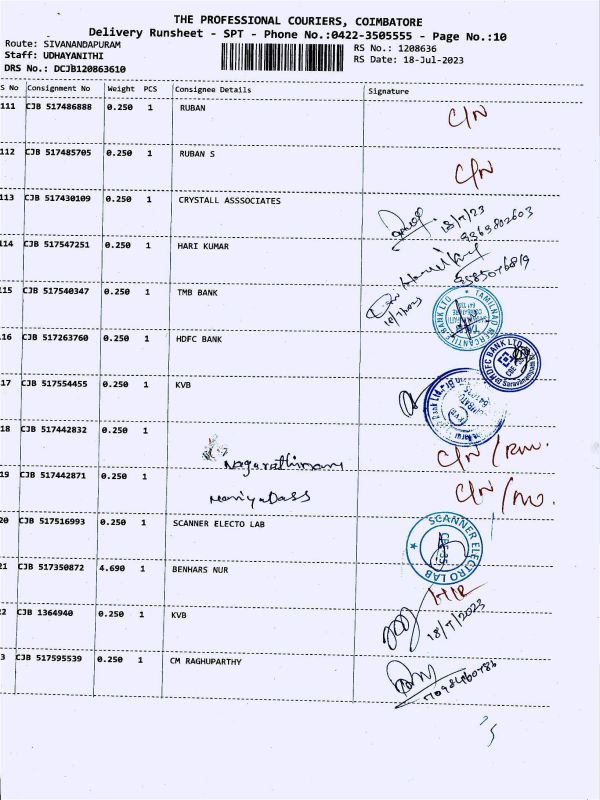 THE PROFESSIONAL COURIERS, COIMBATORE
Delivery Runsheet - SPT - Phone No.:0422-3505555 - Page No.:10
Route: SIVANANDAPURAM RS No.: 1208636
Staff: UDHAYANITHI RS Date: 18-Jul-2023
DRS No.: DCJB120863610
S No Consignment No Weight PCS Consignee Details Signature
111 CJB 517486888 0.250 1 RUBAN C/N
112 CJB 517485705 0.250 1 RUBAN S C/N
113 CJB 517430109 0.250 1 CRYSTALL ASSSOCIATES
18/7/23
9369802603
114 CJB 517547251 0.250 1 HARI KUMAR
9585076819
115 CJB 517540347 0.250 1 TMB BANK
TAMILNAD MERCANTILE BANK LTD
16 CJB 517263760 0.250 1 HDFC BANK
HDFC BANK LTD
CBE
17 CJB 517554455 0.250 1 KVB
18 CJB 517442832 0.250 1 C/N
Nagarathinam
19 CJB 517442871 0.250 1 C/N
MariyaDass
20 CJB 517516993 0.250 1 SCANNER ELECTO LAB
SCANNER ELECTRO LAB
21 CJB 517350872 4.690 1 BENHARS NUR
22 CJB 1364940 0.250 1 KVB
18/7/2023
3 CJB 517595539 0.250 1 CM RAGHUPARTHY